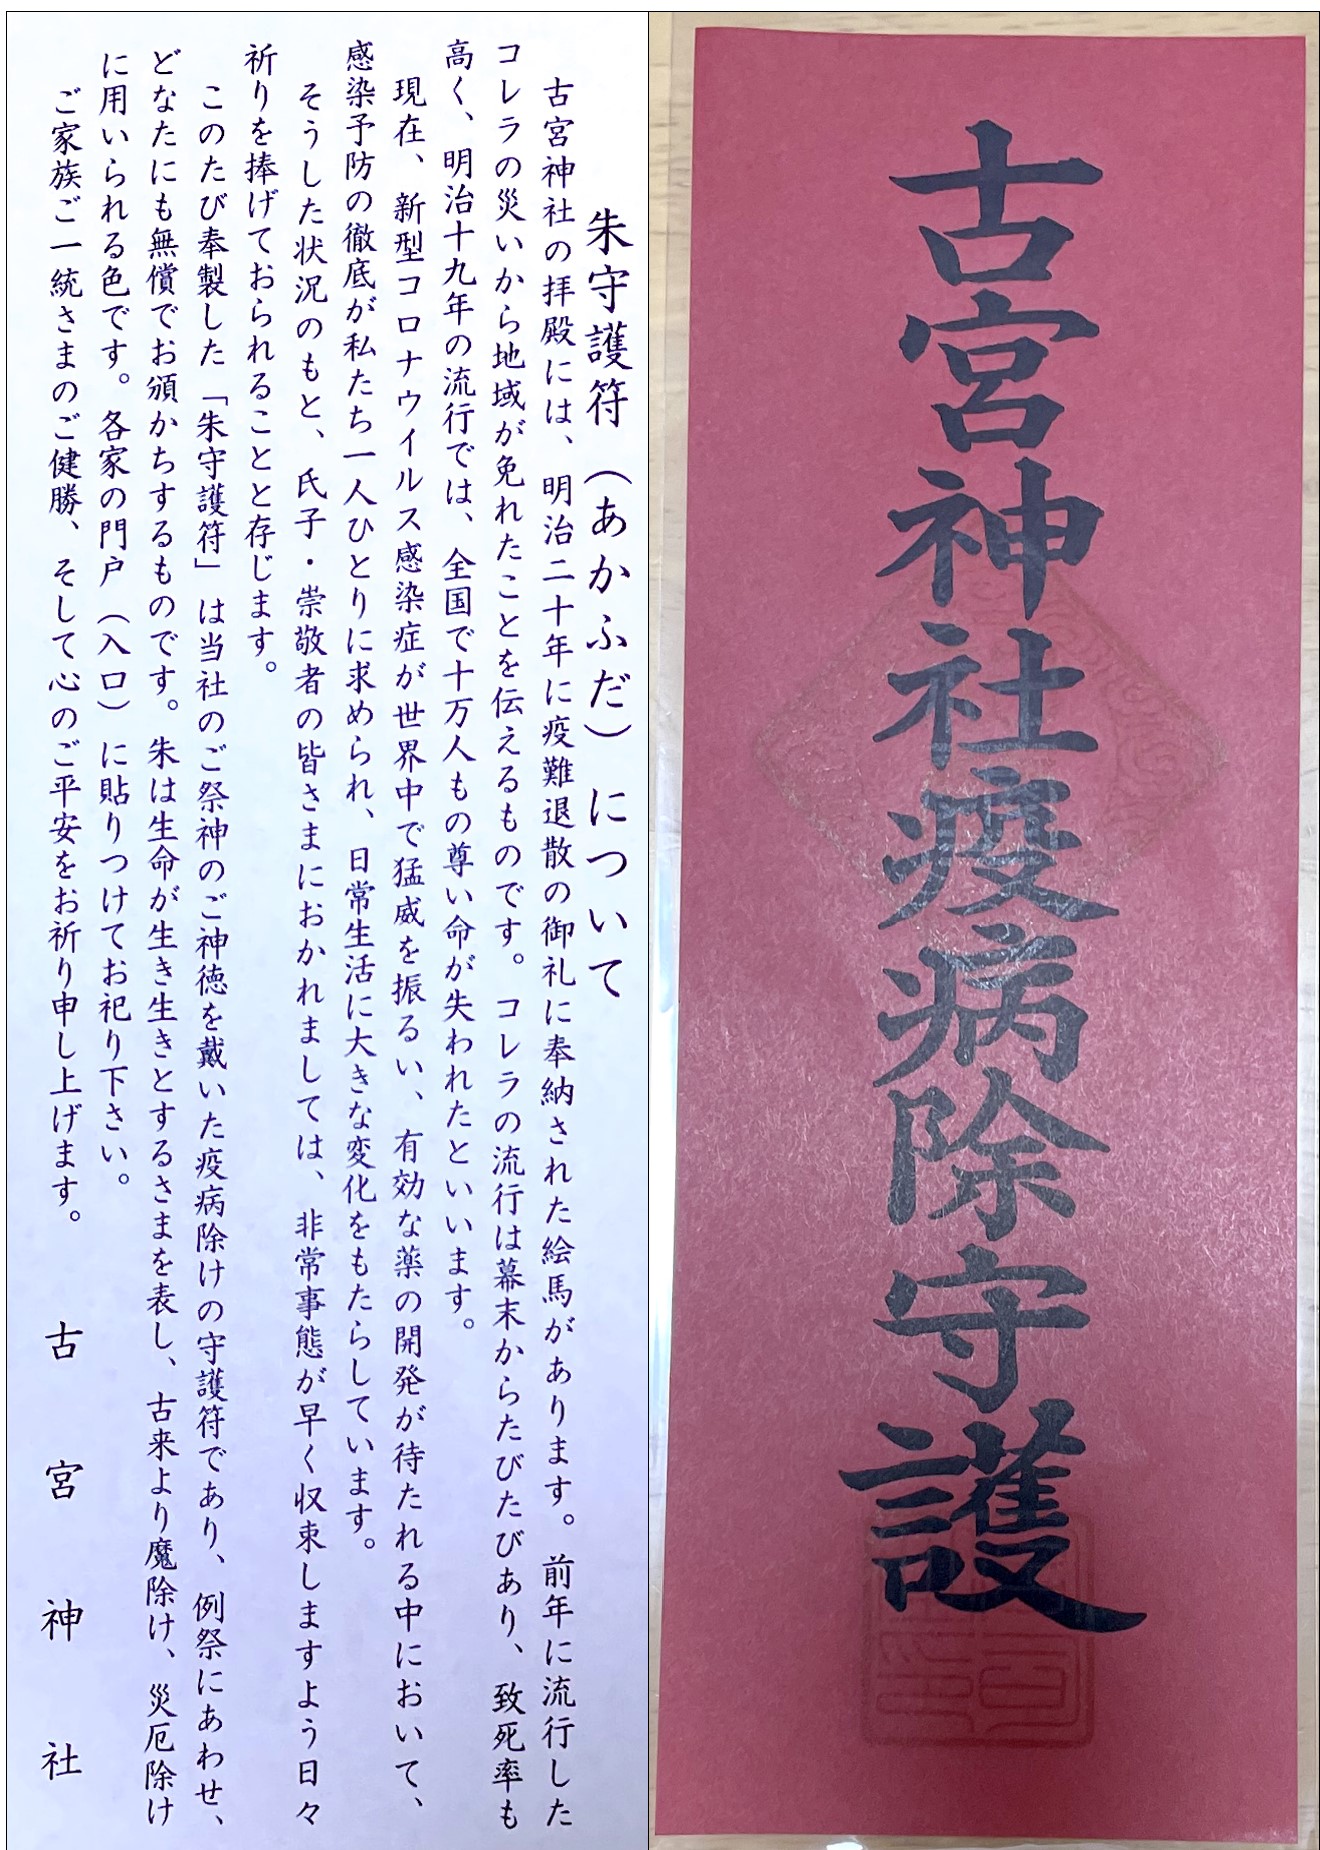 朱守護符（あかふだ）について
古宮神社の拝殿には、明治二十年に疫難退散の御礼に奉納された絵馬があります。前年に流行した
コレラの災いから地域が免れたことを伝えるものです。コレラの流行は幕末からたびたびあり、致死率も
高く、明治十九年の流行では、全国で十万人もの尊い命が失われたといいます。
現在、新型コロナウイルス感染症が世界中で猛威を振るい、有効な薬の開発が待たれる中において、
感染予防の徹底が私たち一人ひとりに求められ、日常生活に大きな変化をもたらしています。
そうした状況のもと、氏子・崇敬者の皆さまにおかれましては、非常事態が早く収束しますよう日々
祈りを捧げておられることと存じます。
このたび奉製した「朱守護符」は当社のご祭神のご神徳を戴いた疫病除けの守護符であり、例祭にあわせ、
どなたにも無償でお頒かちするものです。朱は生命が生き生きとするさまを表し、古来より魔除け、災厄除け
に用いられる色です。各家の門戸（入口）に貼りつけてお祀り下さい。
ご家族ご一統さまのご健勝、そして心のご平安をお祈り申し上げます。
古宮神社
古宮神社疫病除守護